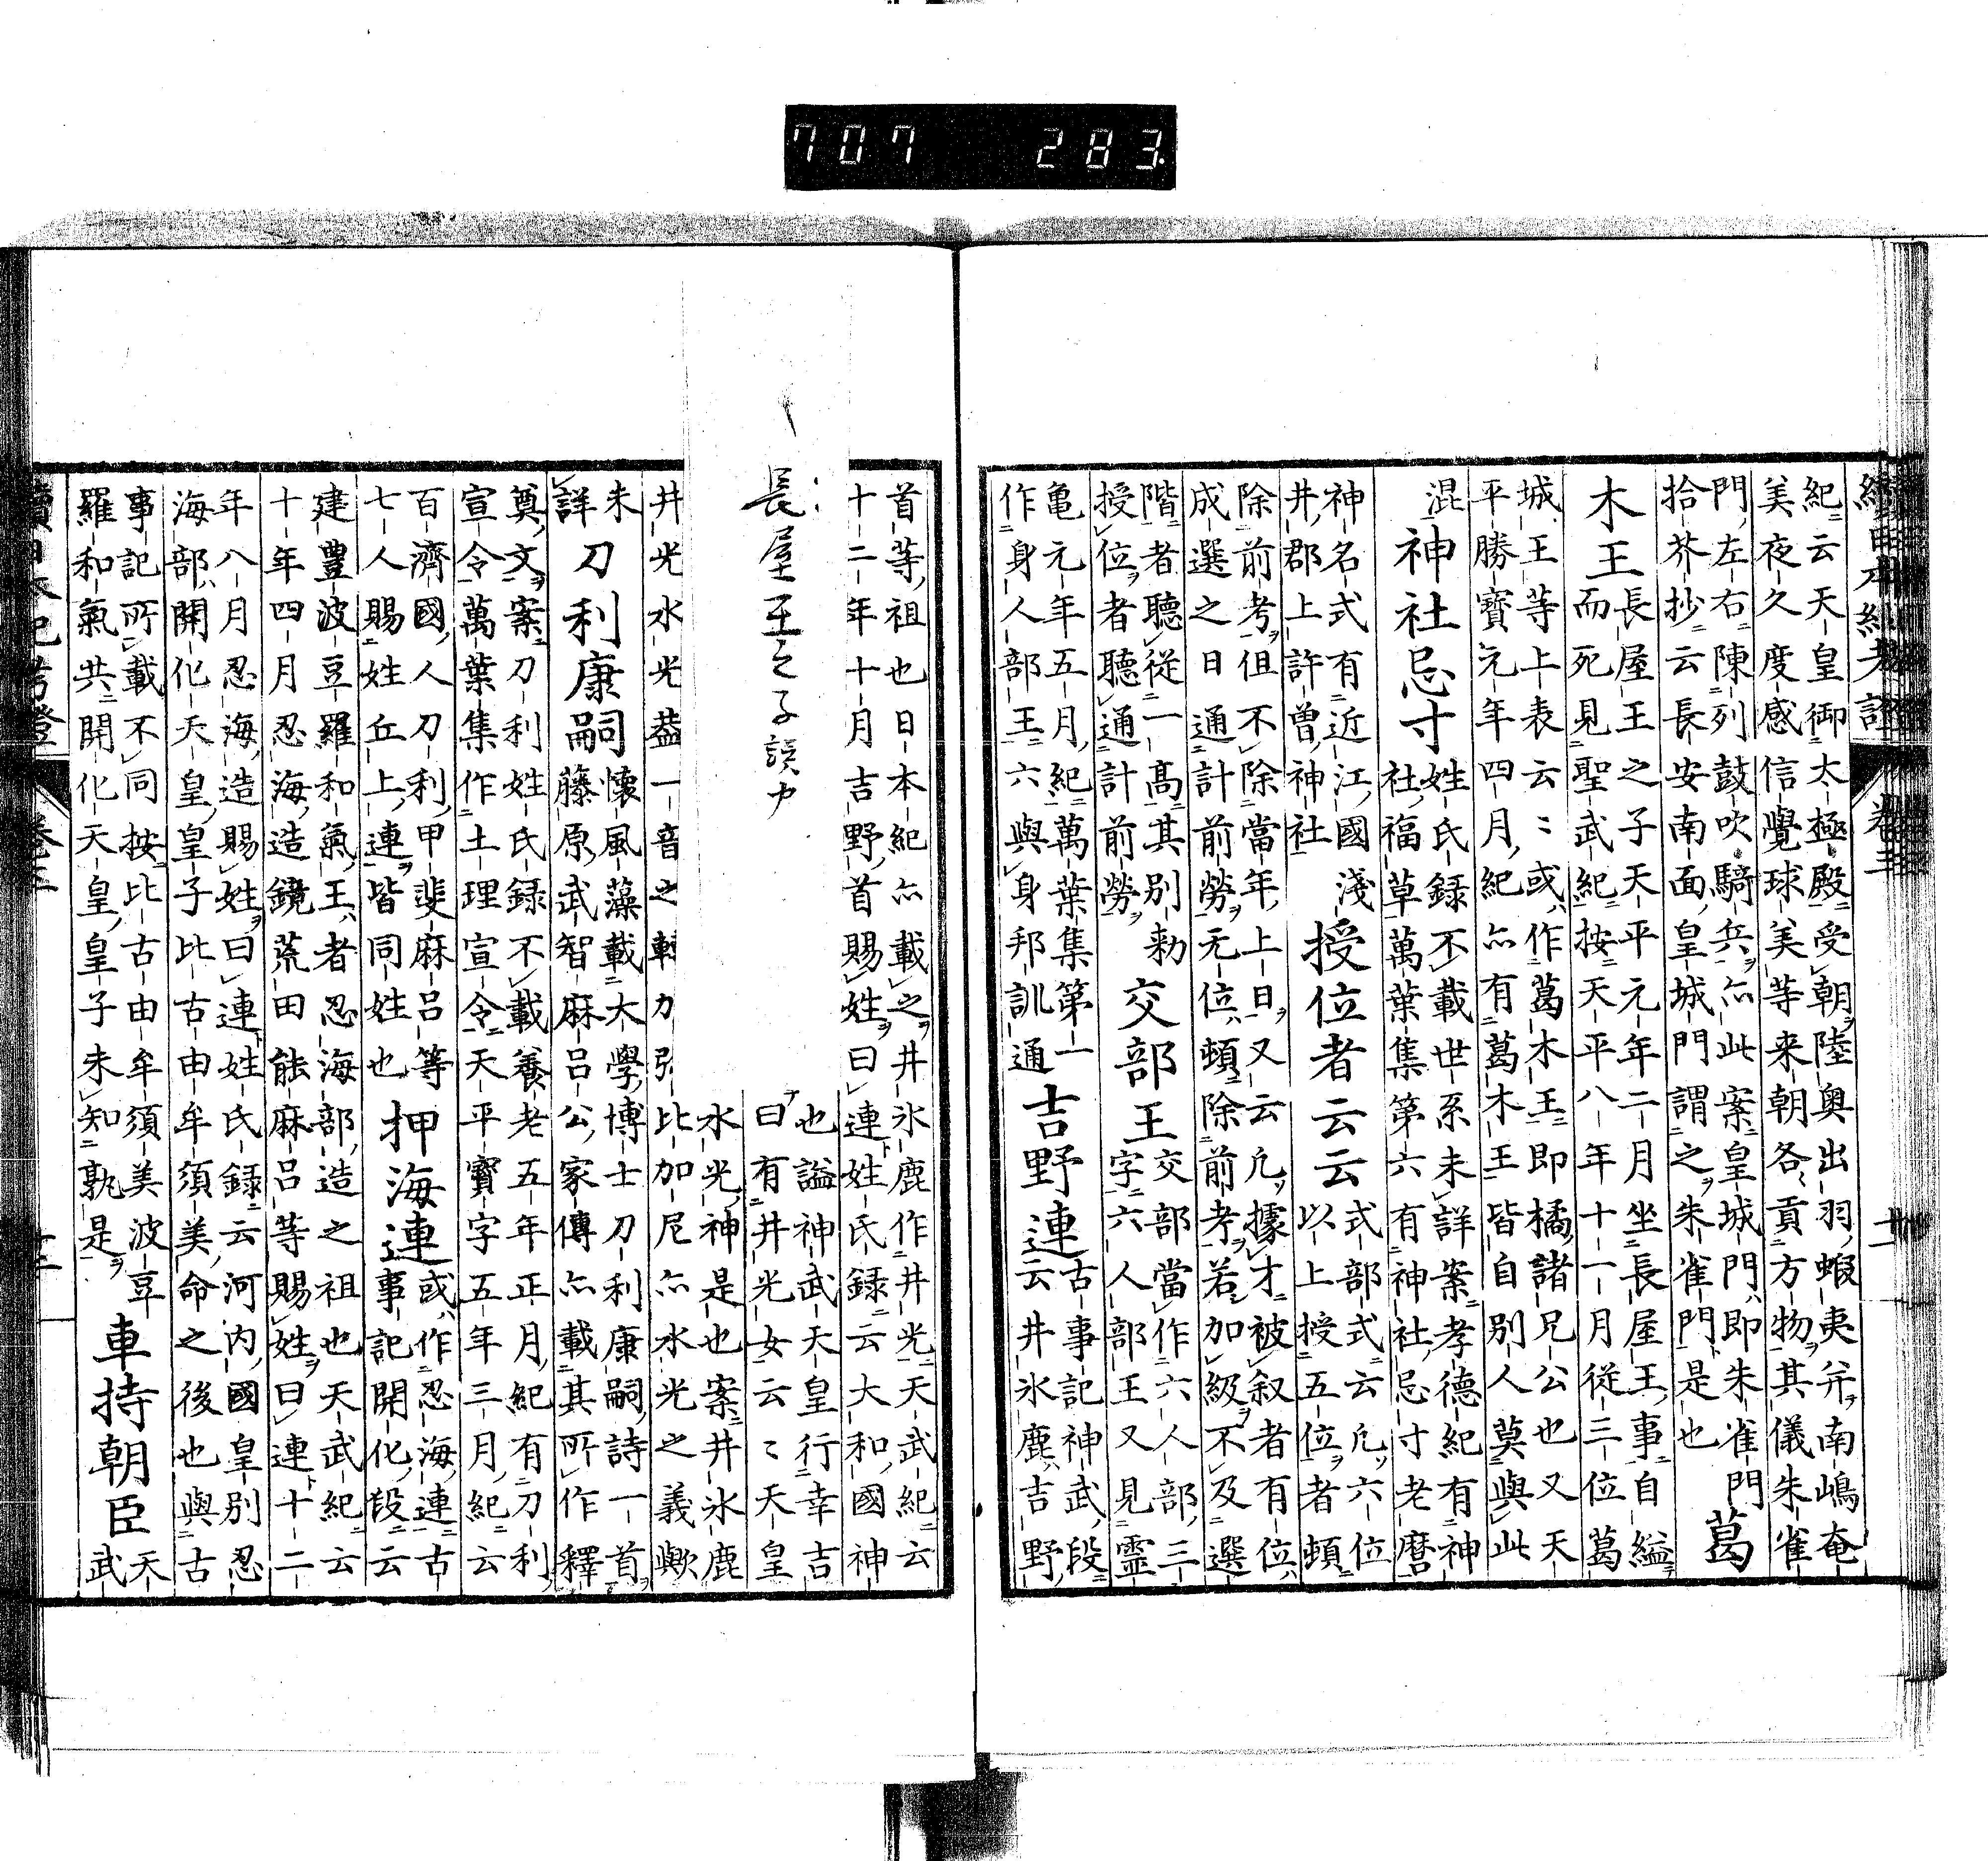 707 283
續日本紀考證 卷三
紀云天皇御太極殿受朝陸奥出羽蝦夷并南嶋奄
美夜久度感信覺球美等来朝各貢方物其儀朱雀
門左右陳列鼓吹騎兵亦此案皇城門即朱雀門
拾芥抄云長安南面皇城門謂之朱雀門是也 葛
木王 長屋王之子天平元年二月坐長屋王事自縊
而死見聖武紀按天平八年十一月從三位葛
城王等上表云〻或作葛木王即橘諸兄公也又天
平勝寶元年四月紀亦有葛木王皆自別人莫與此
混 神社忌寸 姓氏録不載世系未詳案孝德紀有神
社福草萬葉集第六有神社忌寸老麿
神名式有近江國淺
井郡上許曽神社 授位者云云 式部式云凡六位
以上授五位者頓
除前考但不除當年上日又云凡據才被叙者有位
成選之日通計前勞无位頓除前考若加級不及選
階者聽從一髙其别勅
授位者聽通計前勞 交部王 交部當作六人部三
字六人部王又見靈
亀元年五月紀萬葉集第一
作身人部王六與身邦訓通 吉野連 古事記神武段
云井氷鹿吉野
首等祖也日本紀亦載之井氷鹿作井光天武紀云
十二年十月吉野首賜姓曰連姓氏録云大和國神
長屋王之子誤カ
也謚神武天皇行幸吉
曰有井光女云〻天皇
水光神是也案井氷鹿
井光水光葢一音之轉 比加尼亦水光之義歟
未
詳 刀利康嗣 懷風藻載大學博士刀利康嗣詩一首
藤原武智麻呂公家傳亦載其所作釋
奠文案刀利姓氏録不載養老五年正月紀有刀利
宣令萬葉集作土理宣令天平寶字五年三月紀云
百濟國人刀利甲斐麻呂等
七人賜姓丘上連皆同姓也 押海連 或作忍海連古
事記開化段云
建豊波豆羅和氣王者忍海部造之祖也天武紀云
十年四月忍海造鏡荒田能麻呂等賜姓曰連十二
年八月忍海造賜姓曰連姓氏録云河内國皇别忍
海部開化天皇皇子比古由牟須美命之後也與古
事記所載不同按比古由牟須美波豆
羅和氣共開化天皇皇子未知孰是 車持朝臣 天
武
續日本紀考證 卷三